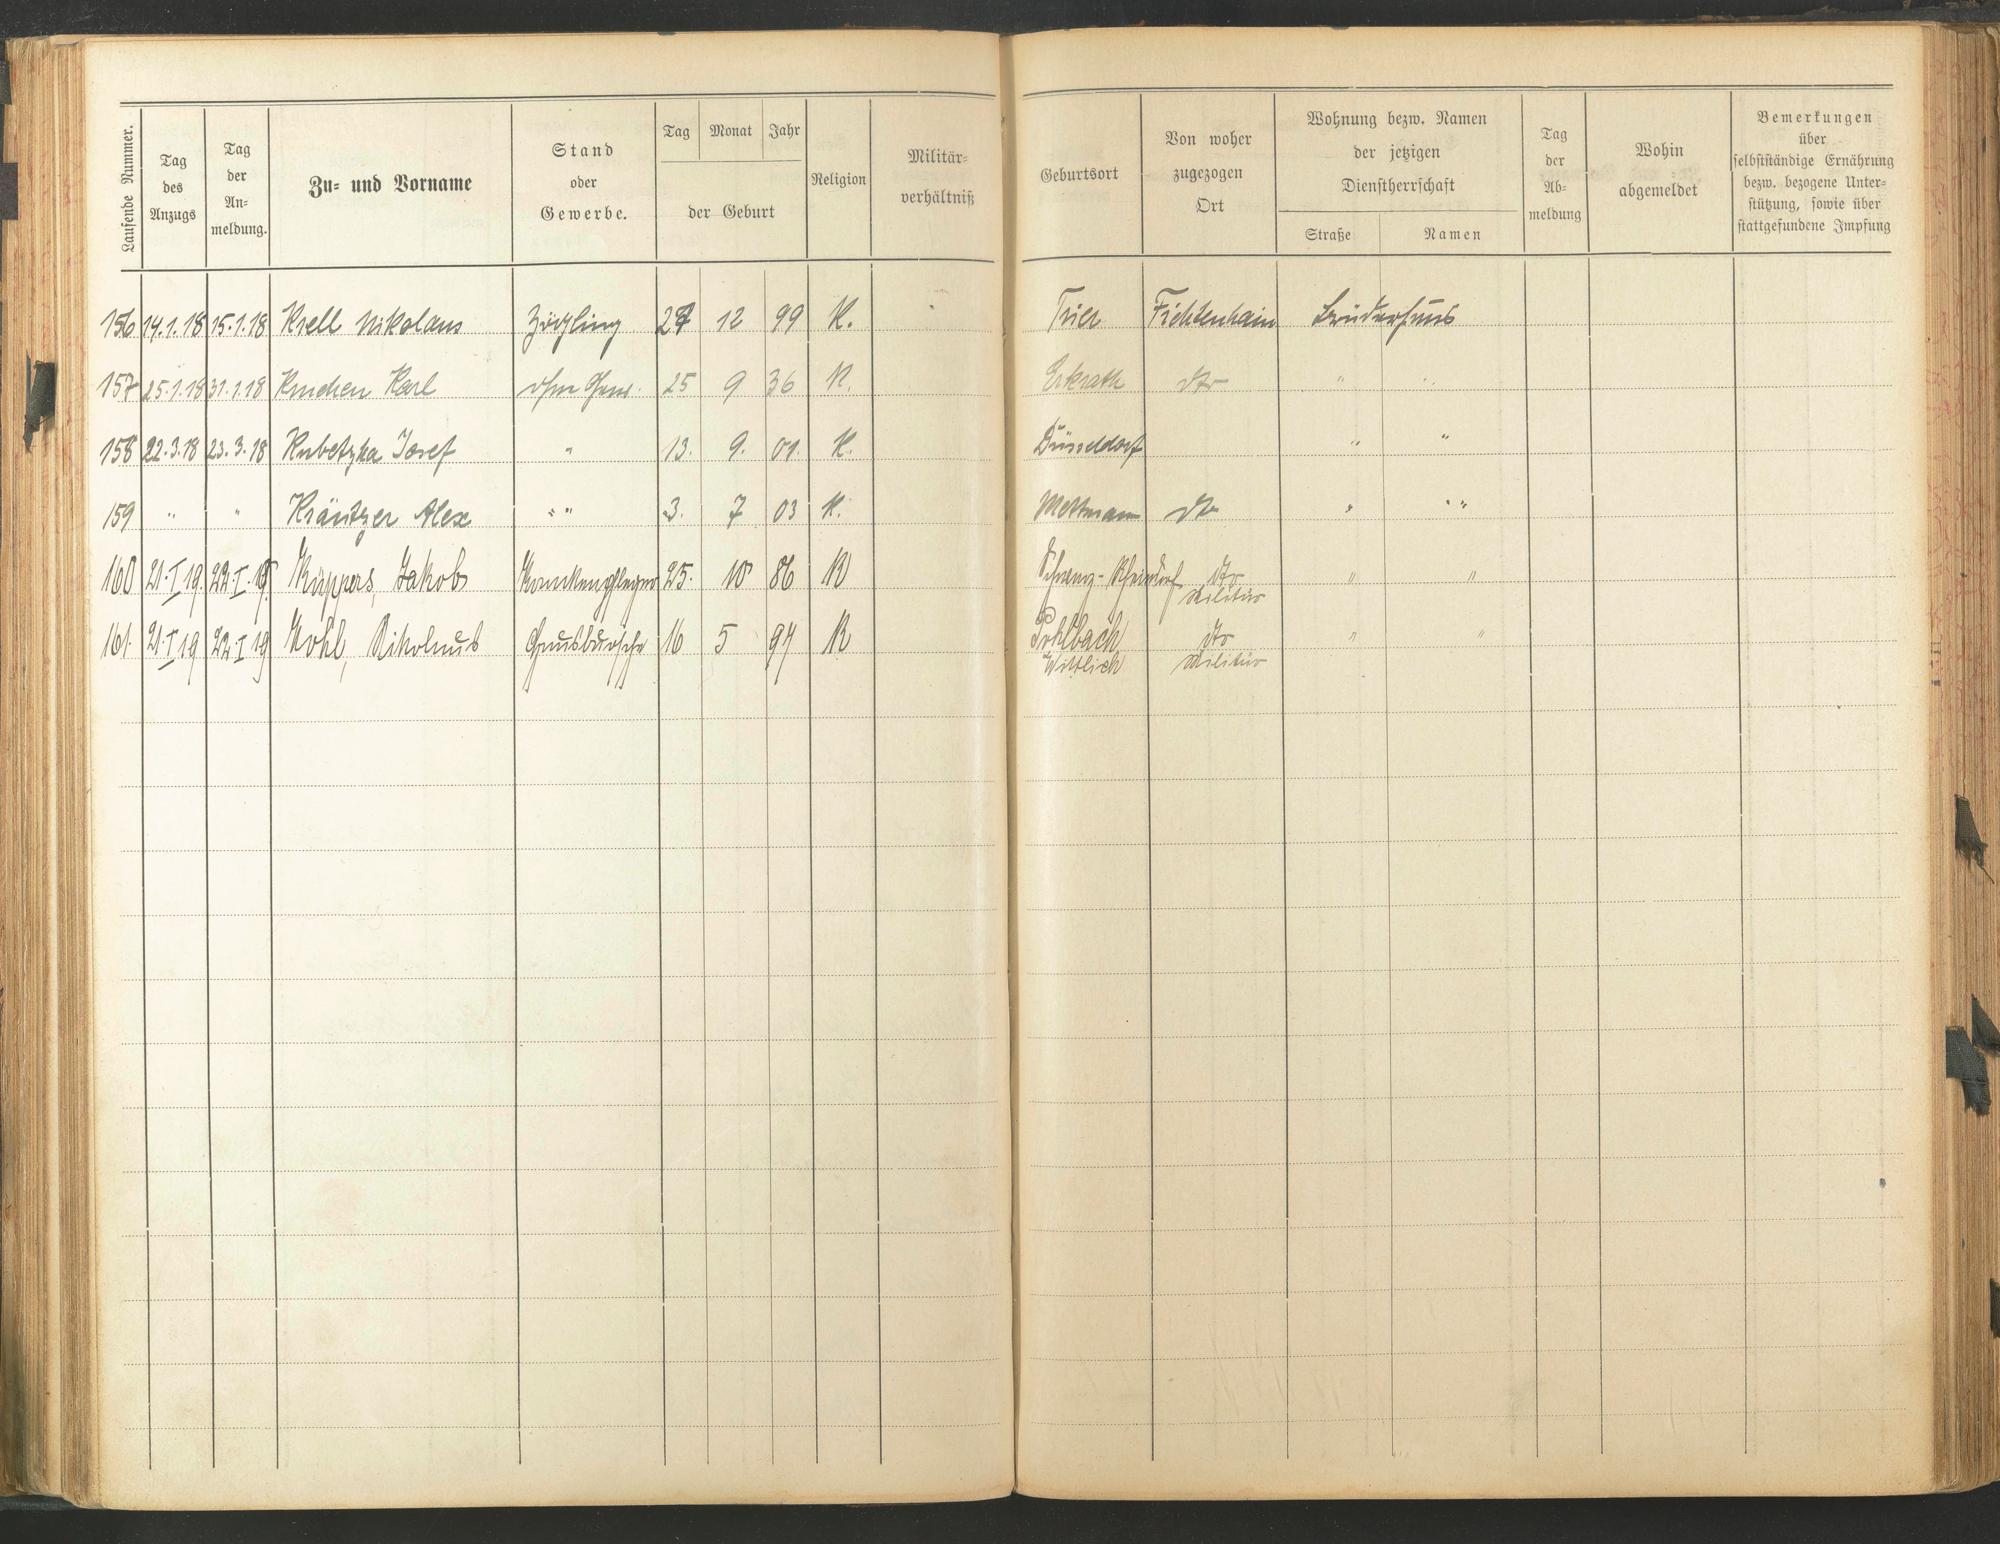 Laufende Nummer.
Tag des Anzugs
Tag der An-meldung.
Zu- und Vorname
Stand oder Gewerbe.
Tag Monat Jahr
der Geburt
Religion
Militär-verhältniß
Geburtsort
Von woher zugezogen Ort
Wohnung bezw. Namen der jetzigen Dienstherrschaft
Straße Namen
Tag der Ab-meldung
Wohin abgemeldet
Bemerkungen über selbstständige Ernährung bezw. bezogene Unter-stützung, sowie über stattgefundene Impfung
156 14.1.18 15.1.18 Krell Nikolaus Zögling 27 12 99 K. Trier Fichtenhain Bruderhaus
157 25.1.18 31.1.18 Karl 25 9 36 K. Erkrath dto " "
158 22.3.18 23.3.18 Kubetzka Josef " 13. 9. 01. K. Düsseldorf " "
159 " " Kräutzer Alex " " 3. 7 03 K. Mettmann dto " " "
160 21.I 19. 22.I.19. Küppers, Jakob Krankenpfleger 25. 10 86 K Rheindorf dto " "
Militär
161. 21.I 19 22.I 19 Kohl, Nikolaus Hausbursche 16 5 94 K dto " "
Wittlich Militär